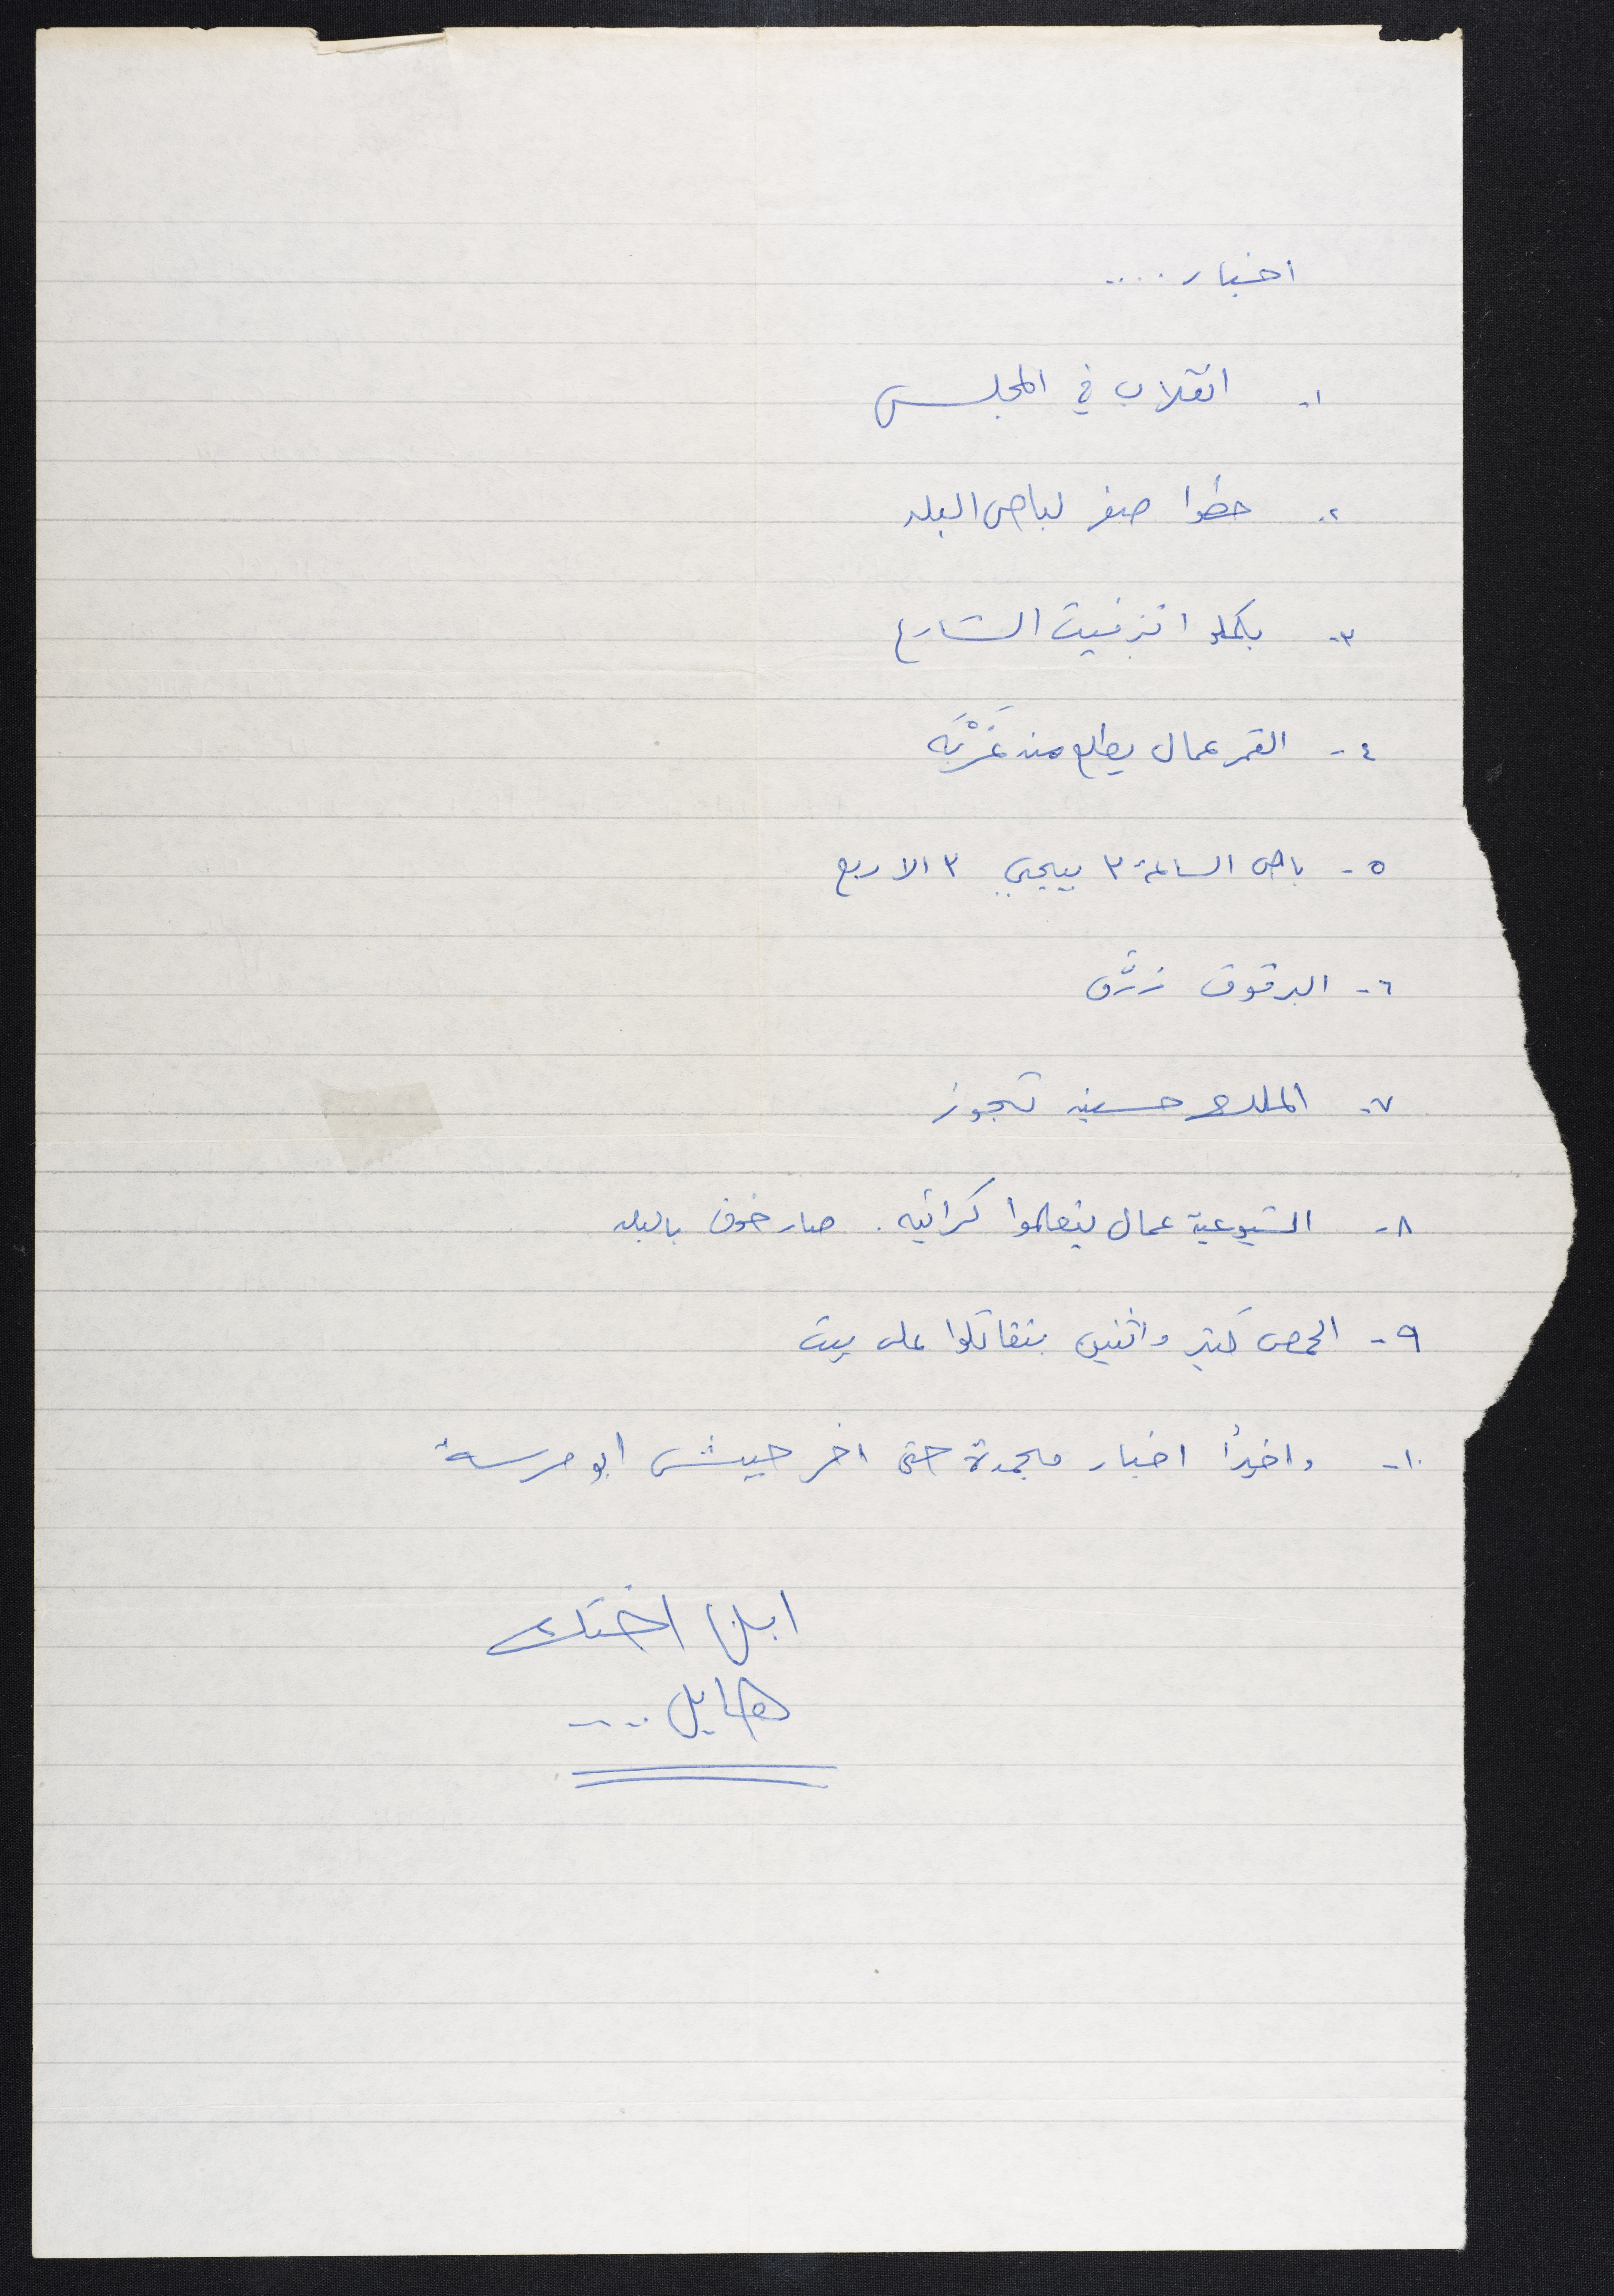 اخبار ....
١- انقلاب في المجلس
٢- حطوا صفر لباص البلد
٣- بكملو اتزفيت الشارع
٤- القمر عمال يطلع من غَرْبَه
٥- باص الساعة ٣ بيجي ٣ الا ربع
٦- البرقوق زرّق
٧- الملك حسين تجوز
٨- الشيوعية عمال يتعلموا كراتيه. صار خوف بالبلد
٩- الحمص كتير واثنين بتقاتلوا على بيت
١٠- واخيرًا اخبار مجمدة حتى اخر حيش ابو مرسة
ابن اختك
هايل ....